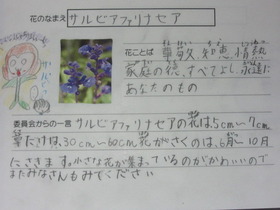 花のなまえ サルビアファリナセア
花ことば 尊敬、知恵、情熱
家庭の徳、すべてよし、永遠に
あなたのもの
委員会からの一言 サルビアファリナセアの花は、5cm〜7cm
草たけは、30cm〜60cm 花がさくのは、6月〜10月
にさきます。小さな花が集まっているのがかわいいので
またみなさんもみてください